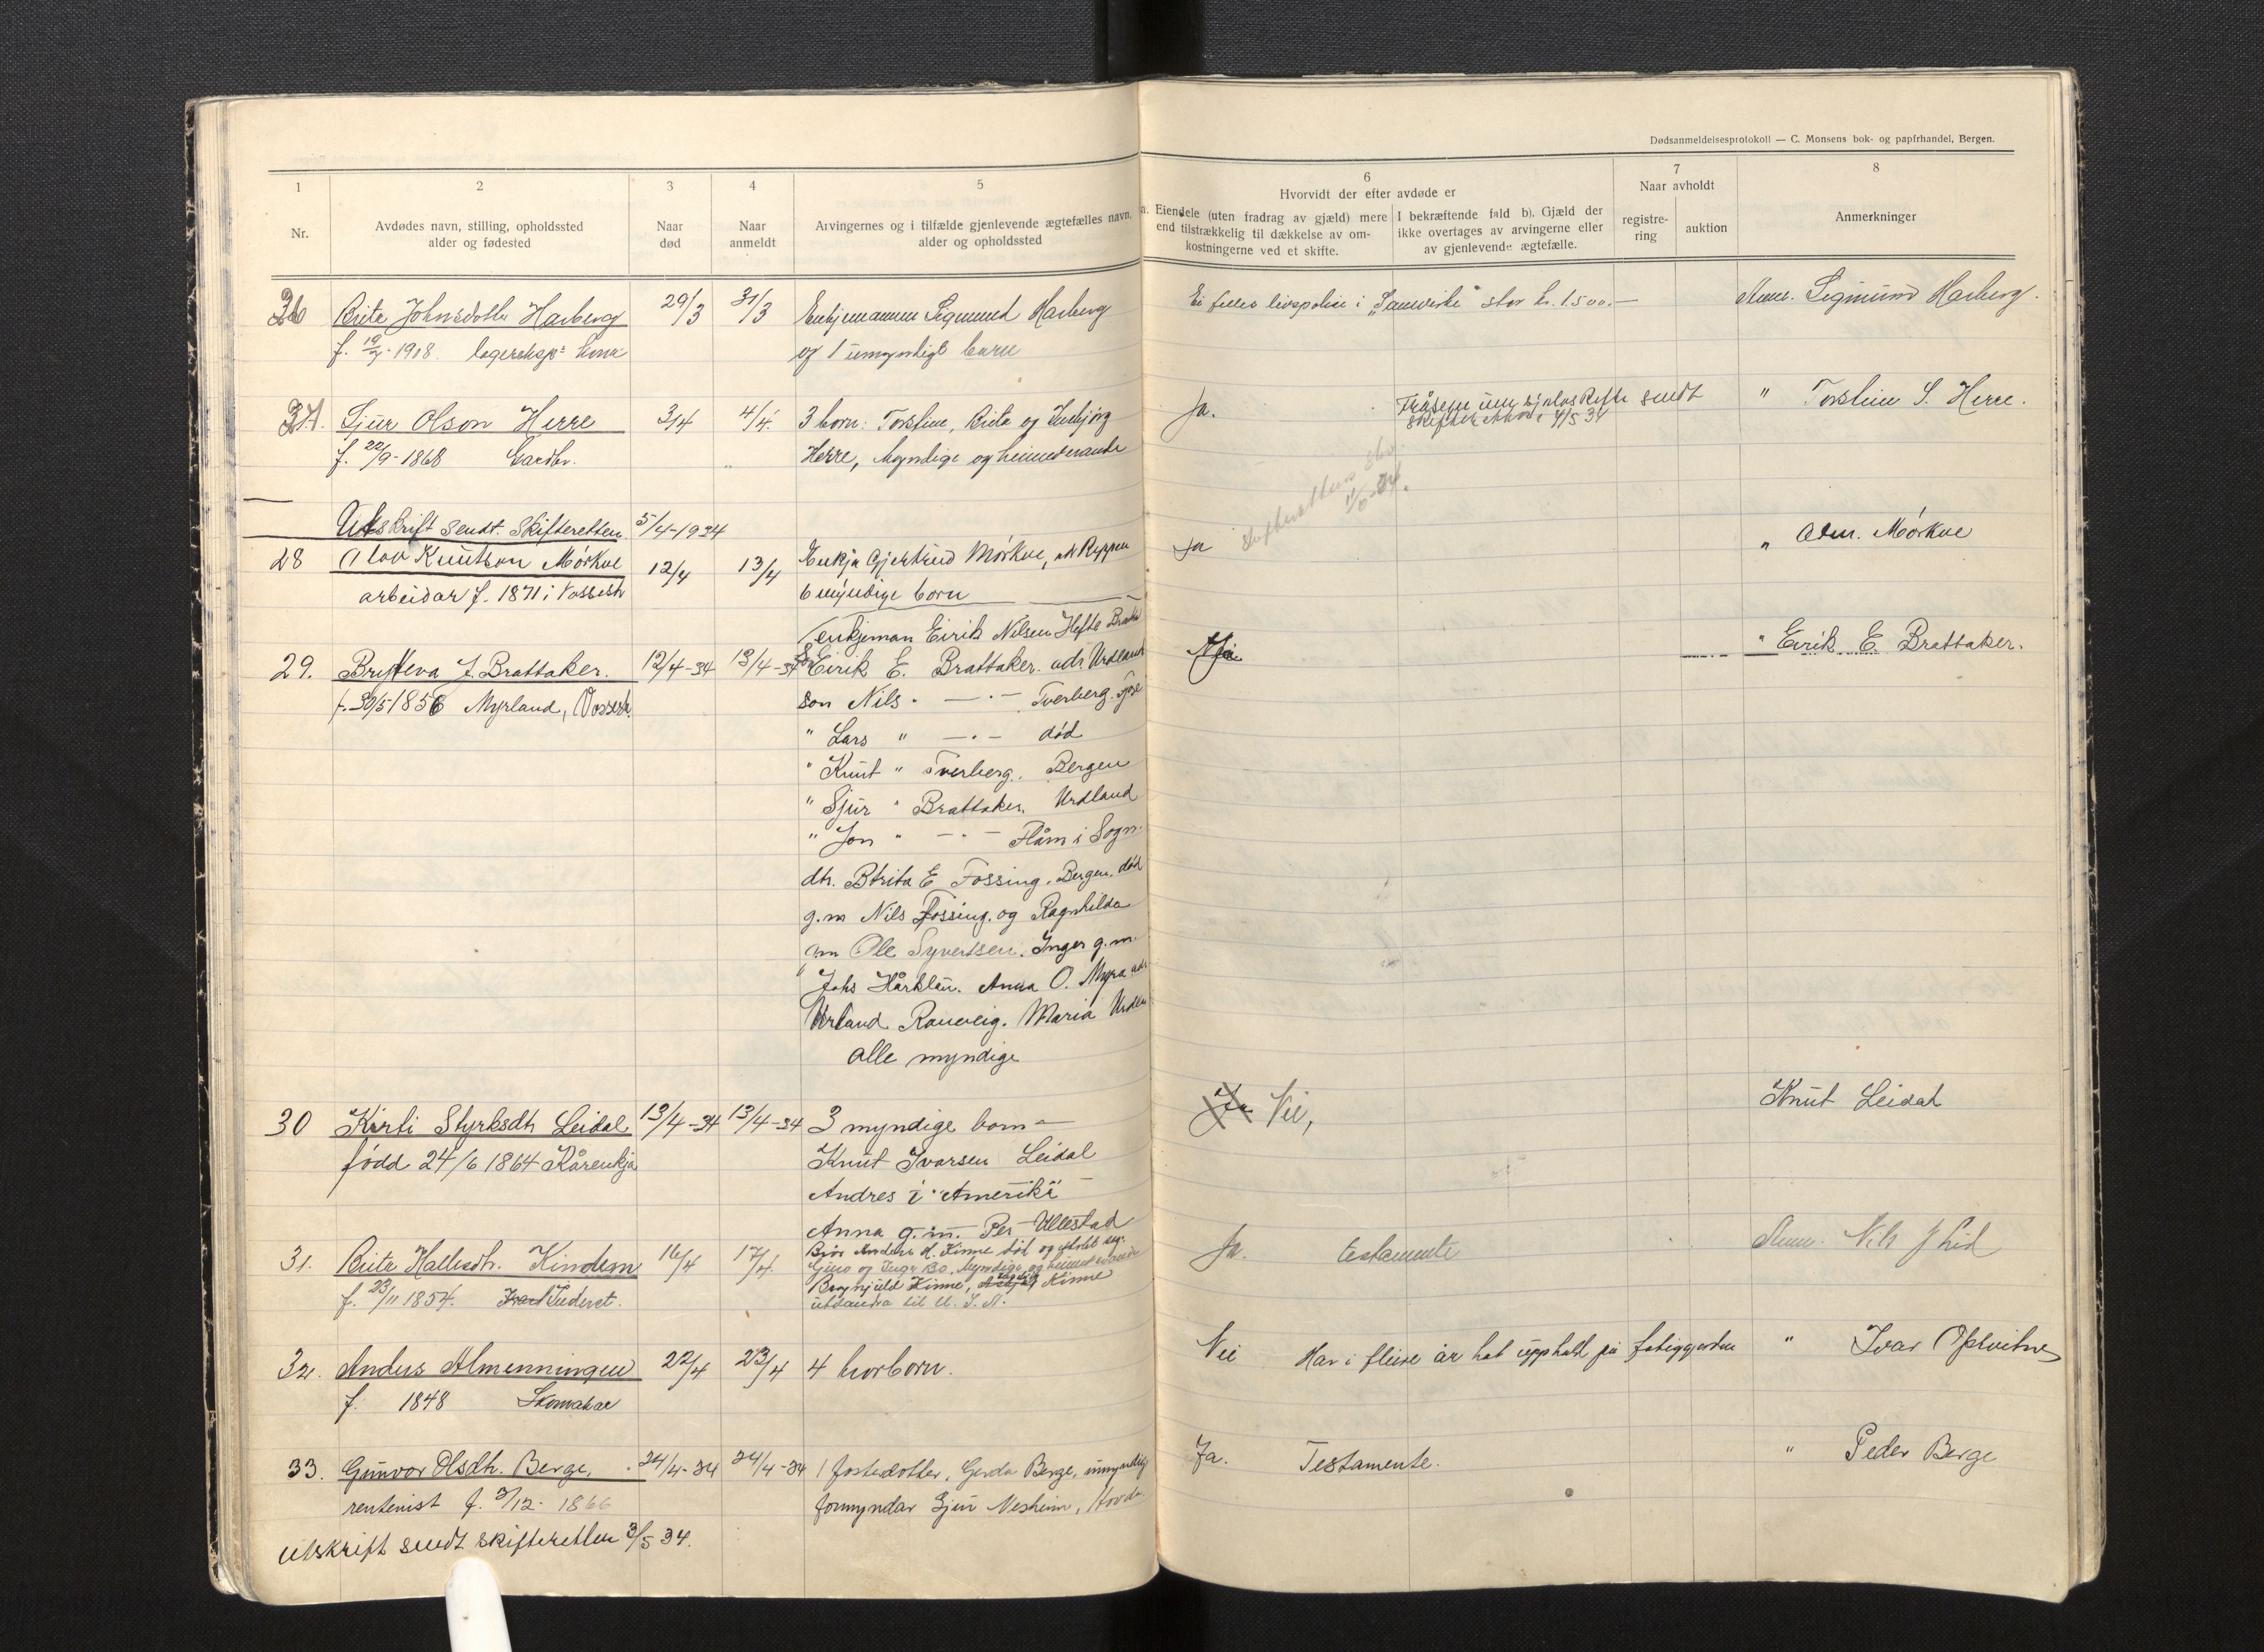 Dødsanmeldelsesprotokoll — C. Monsens bok- og papirhandel, Bergen.
1 2 3 4 5 6 7 8
Nr.
Avdødes navn, stilling, opholdssted
alder og fødested
Naar
død
Naar
anmeldt
Arvingernes og i tilfælde gjenlevende ægtefælles navn,
alder og opholdssted
Hvorvidt der efter avdøde er
a. Eiendele (uten fradrag av gjæld) mere
end tilstrækkelig til dækkelse av om-
kostningerne ved et skifte.
I bekræftende fald b). Gjæld der
ikke overtages av arvingerne eller
av gjenlevende ægtefælle.
Naar avholdt
registre-
ring
auktion
Anmerkninger
26 Brita Johnsdotter Harberg 29/3 31/3 Enkjemannen Sigmund Harberg Ei felles livspolise i „Samvirke" stor kr. 1500.— Anm. Sigmund Harberg.
f. 19/7-1918. og 1 umyndigt barn
27. Sjur Olson Herre 3/4 4/4. 3 born: Torstein, Brita og Ja. sendt " Torstein S. Herre.
4/5 34
f. 22/9-1868 Gardbr. Herre, Myndige og heimeverande
Utskrift sendt. Skifteretten 5/4-1934
28 Olav Knutson Mørkve 12/4 13/4 Enkja Gjertrud Mørkve, Ja " Mørkve
arbeidar f. 1871 i Vossestr 6 born
enkjeman Eirik Nilsen
29. Britteva J. Brattaker. 12/4-34 13/4-34 Eirik E. Brattaker. adr Urdland " Eirik E. Brattaker.
f. 30/5 1856 Myrland, Vossestr. son Nils " — " — Tverberg.
" Lars " — " — død
" Knut " Tverberg. Bergen
" Sjur " Brattaker. Urdland
" Jon " — " — Flåm i Sogn.
dtr. Brita E Fossing. Bergen. død
g.m Nils Fossing. og Ragnhilda
m Ole Syvertsen. Inger g.m.
" Johs Hårklau. Anna O. Myra adr
Urland Ranveig. Maria
alle myndige
30 Kirti Styrksdtr Leidal 13/4-34 13/4-34 3 myndige born — Ja Nei, Knut Leidal
fødd 24/6 1864 Kårenkja Knut Ivarsen Leidal
Andres i Amerika
Anna g.m. Per Ullestad
31. Brita Hallesdtr. Kindem 16/4 17/4. Bror Anders H. Kinne død og etterlet seg. Ja. testamente Anm. Nils J Lid
Myndige og heimeverande
f. 23/11 1854. Brynjulf Kinne, Kinne
utvandra til U. S. A.
32. Anders Almenningen 22/4 23/4 4 borborn. Nei Har i fleire år hat upphald på fatiggarden " Ivar Opheim
f. 1848 Skomakar
33. Gunvor Olsdtr. Berge, 24/4-34 24/4-34 1 fosterdotter, Gerda Berge, umyndig Ja. Testamente. " Peder Berge
rentenist f. 3/12-1866 formyndar Sjur Nesheim,
Utskrift sendt skifteretten 3/5 34.